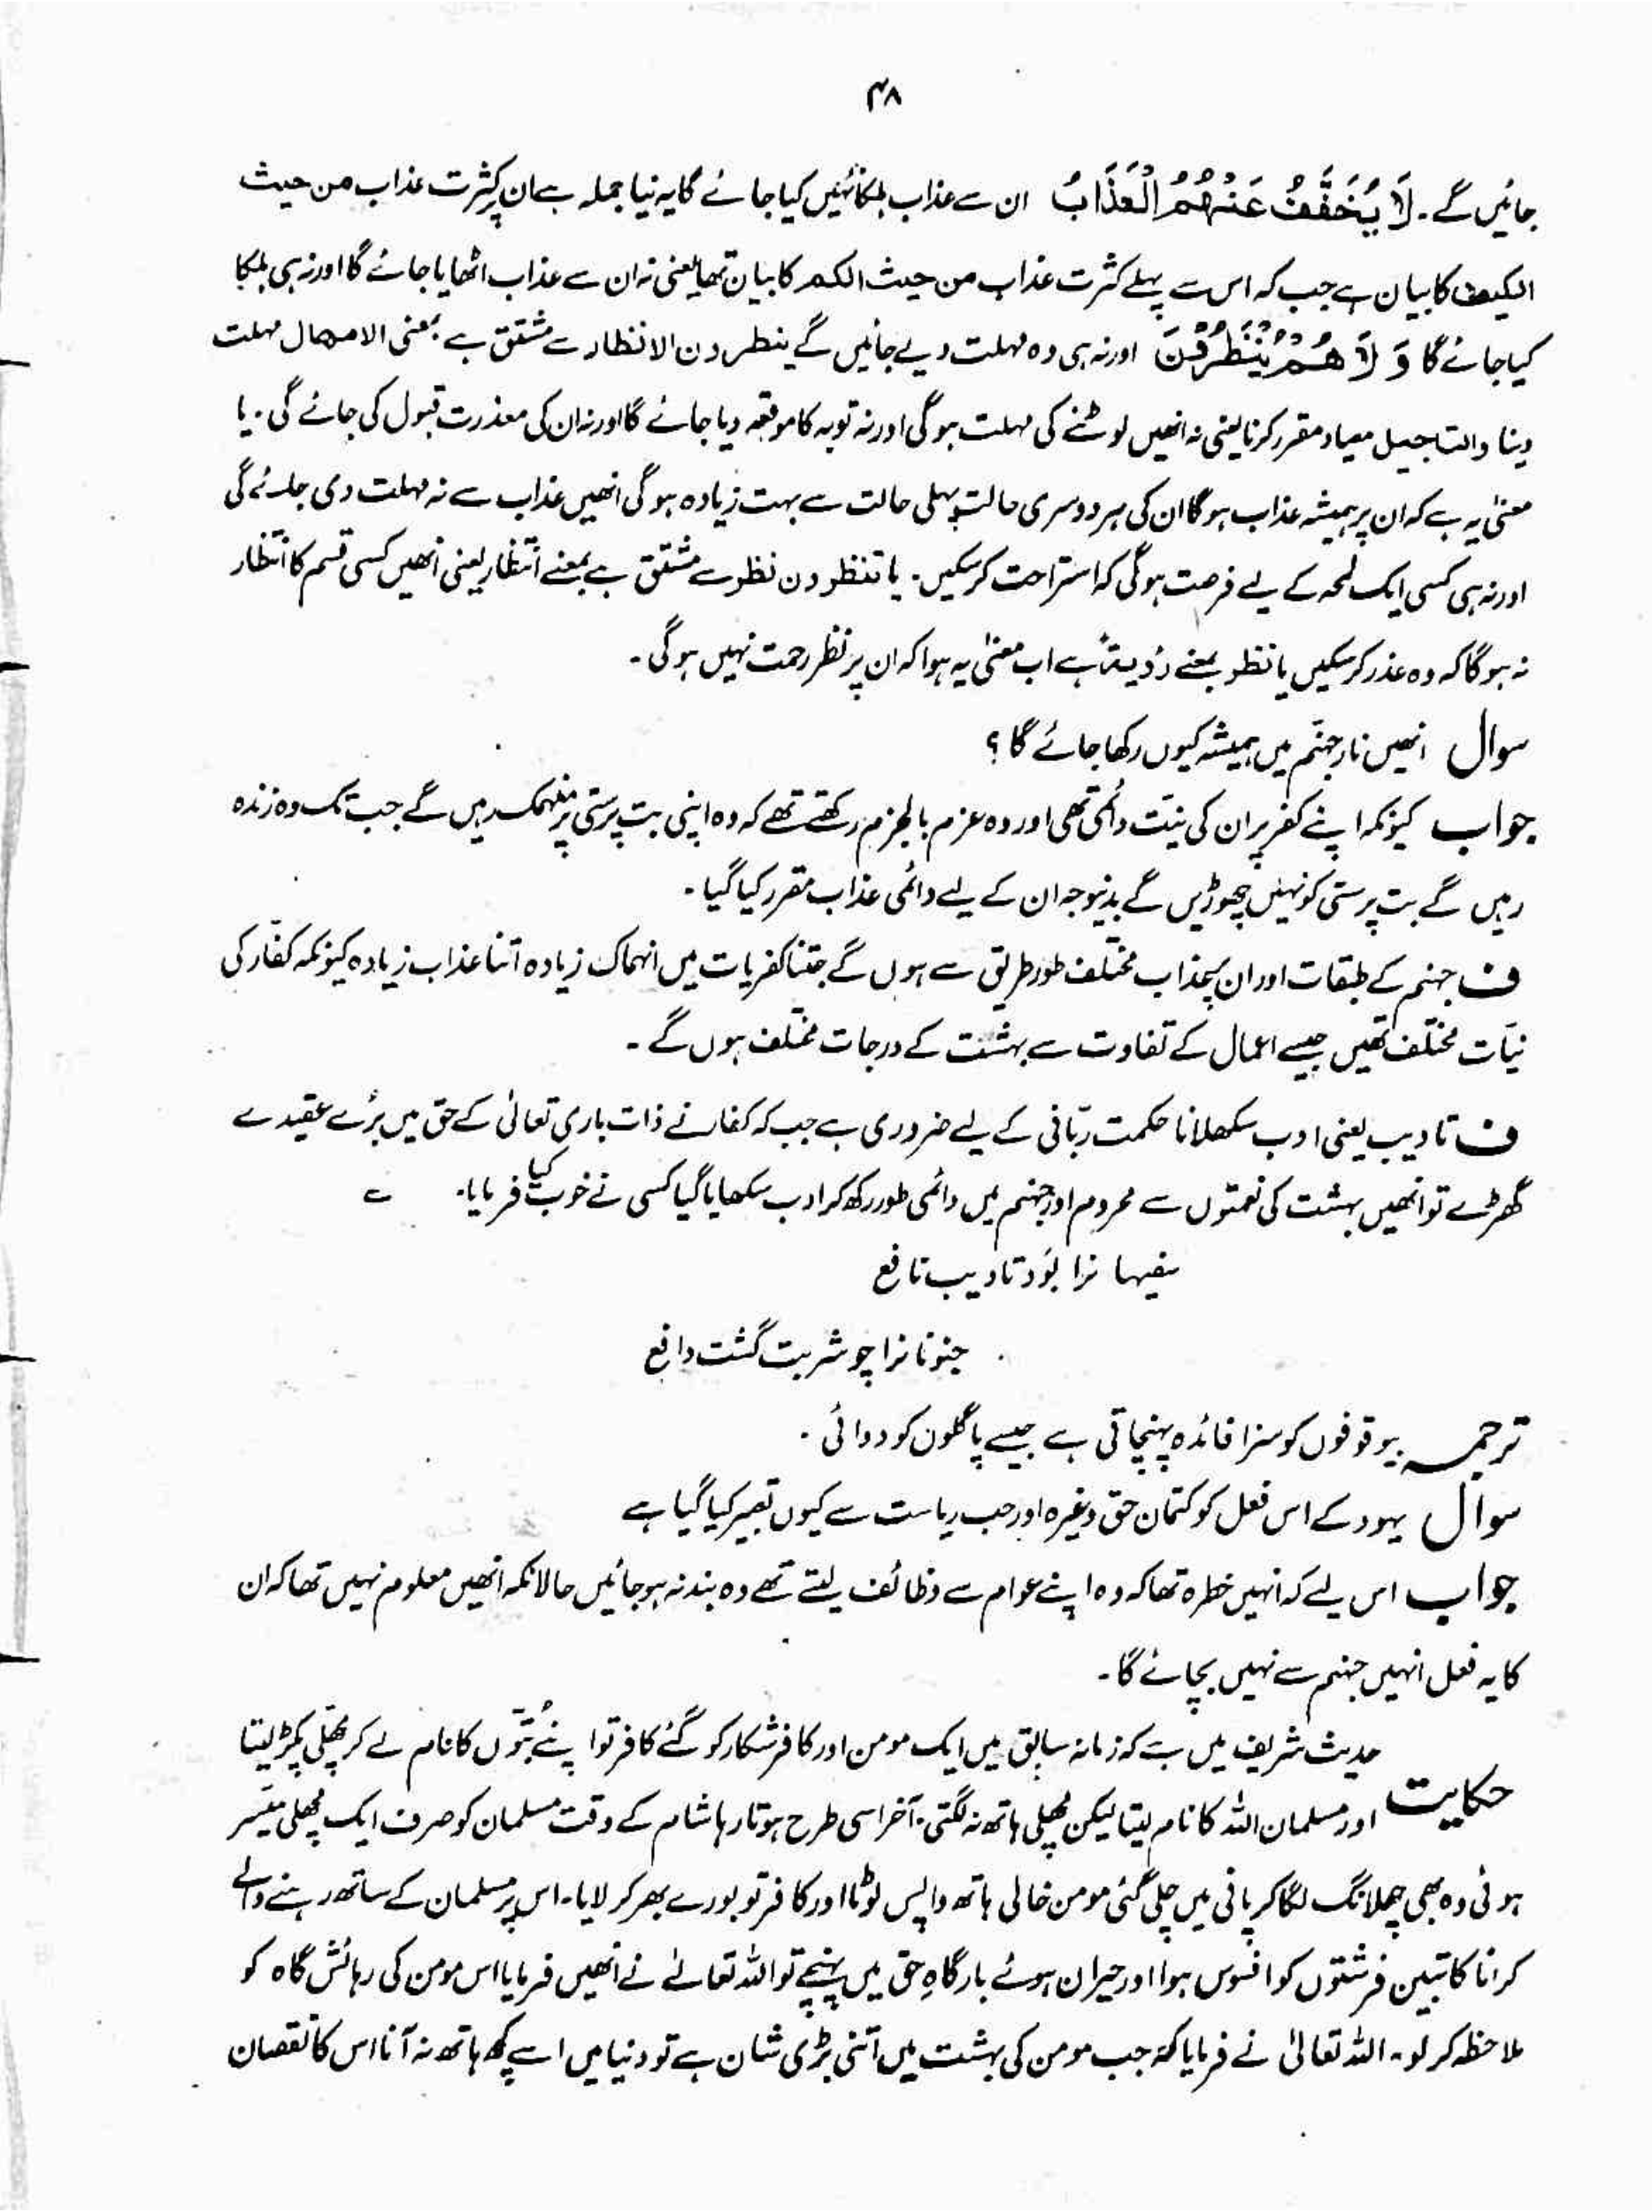 ۴۸
جائیں گے۔ لَا يُخَفَّفُ عَنْهُمُ الْعَذَابُ ان سے عذاب ہلکا نہیں کیا جائے گا یہ نیا جملہ ہے ان پر کثرت عذاب من حیث
الکیف کا بیان ہے جب کہ اس سے پہلے کثرت عذاب من حیث الکم کا بیان تھا یعنی نہ ان سے عذاب اٹھایا جائے گا اور نہ ہی ہلکا
کیا جائے گا وَ لَا هُمْ يُنْظَرُوْنَ اور نہ ہی وہ مہلت دیے جائیں گے ینظرون الانظار سے مشتق ہے بمعنی الامهال مہلت
دینا والتاجیل میعاد مقرر کرنا یعنی نہ انھیں لوٹنے کی مہلت ہوگی اور نہ توبہ کا موقعہ دیا جائے گا اور نہ ان کی معذرت قبول کی جائے گی۔ یا
معنیٰ یہ ہے کہ ان پر ہمیشہ عذاب ہوگا ان کی ہر دوسری حالت پہلی حالت سے بہت زیادہ ہوگی انھیں عذاب سے نہ مہلت دی جائے گی
اور نہ ہی کسی ایک لمحہ کے لیے فرصت ہوگی کہ استراحت کرسکیں۔ یا تنظرون نظر سے مشتق ہے بمعنے انتظار یعنی انھیں کسی قسم کا انتظار
نہ ہوگا کہ وہ عذر کرسکیں یا نظر بمعنے رؤیۃ ہے اب معنیٰ یہ ہوا کہ ان پر نظر رحمت نہیں ہوگی۔
سوال انھیں نار جہنّم میں ہمیشہ کیوں رکھا جائے گا ؟
جواب کیونکہ اپنے کفر پر ان کی نیّت دائمی تھی اور وہ عزم بالجزم رکھتے تھے کہ وہ اپنی بت پرستی پر منہمک رہیں گے جب تک وہ زندہ
رہیں گے بت پرستی کو نہیں چھوڑیں گے بدینوجہ ان کے لیے دائمی عذاب مقرر کیا گیا۔
ف جہنم کے طبقات اور ان پر عذاب مختلف طور طریق سے ہوں گے جتنا کفریات میں انہماک زیادہ اتنا عذاب زیادہ کیونکہ کفّار کی
نیّات مختلف تھیں جیسے اعمال کے تفاوت سے بہشت کے درجات مختلف ہوں گے۔
ف تادیب یعنی ادب سکھلانا حکمت ربّانی کے لیے ضروری ہے جب کہ کفار نے ذات باری تعالیٰ کے حق میں بُرے عقیدے
گھڑے تو انھیں بہشت کی نعمتوں سے محروم اور جہنم میں دائمی طور رکھ کر ادب سکھایا گیا کسی نے خوب کیا فرمایا۔ ے
سفیہا نرا بُود تادیب نافع
جنونا نرا چو شربت گشت دافع
ترجمہ بیوقوفوں کو سزا فائدہ پہنچاتی ہے جیسے پاگلوں کو دوائی۔
سوال یہود کے اس فعل کو کتمان حق وغیرہ اور حب ریاست سے کیوں تعبیر کیا گیا ہے
جواب اس لیے کہ انہیں خطرہ تھا کہ وہ اپنے عوام سے وظائف لیتے تھے وہ بند نہ ہوجائیں حالانکہ انھیں معلوم نہیں تھا کہ ان
کا یہ فعل انہیں جہنم سے نہیں بچائے گا۔
حدیث شریف میں ہے کہ زمانہ سابق میں ایک مومن اور کافر شکار کو گئے کافر تو اپنے بُتوں کا نام لے کر مچھلی پکڑ لیتا
حکایت اور مسلمان اللہ کا نام لیتا لیکن مچھلی ہاتھ نہ لگتی۔ آخر اسی طرح ہوتا رہا شام کے وقت مسلمان کو صرف ایک مچھلی میّسر
ہوئی وہ بھی چھلانگ لگا کر پانی میں چلی گئی مومن خالی ہاتھ واپس لوٹا اور کافر تو بورے بھر کر لایا۔ اس پر مسلمان کے ساتھ رہنے والے
کراناً کاتبین فرشتوں کو افسوس ہوا اور حیران ہوئے بارگاہِ حق میں پہنچے تو اللہ تعالےٰ نے انھیں فرمایا اس مومن کی رہائش گاہ کو
ملاحظہ کر لو۔ اللہ تعالیٰ نے فرمایا کہ جب مومن کی بہشت میں اتنی بڑی شان ہے تو دنیا میں اسے کچھ ہاتھ نہ آنا اس کا نقصان